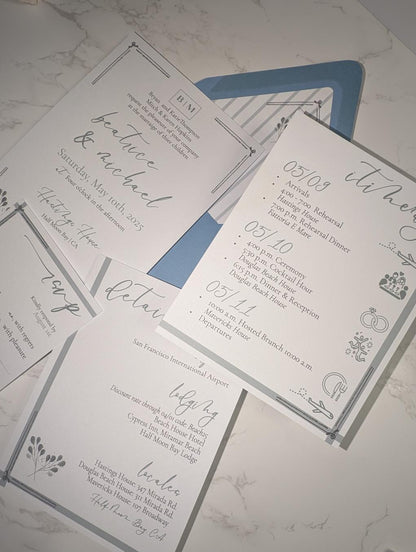 B | M
Brian and Katie Thompson
Mitch & Karen Hopkins
request the pleasure of your company
at the marriage of their children
beatrice
& michael
Saturday, May 10th, 2025
four o'clock in the afternoon
Hastings House
Half Moon Bay | CA
itinerary
05/09
Arrivals
4:00 - 7:00 Rehearsal
Hastings House
7:00 p.m. Rehearsal Dinner
Pastoria E Mare
05/10
4:00 p.m. Ceremony
5:30 p.m. Cocktail Hour
Douglas Beach House
6:15 p.m. Dinner & Reception
Douglas Beach House
05/11
10:00 a.m. Hosted Brunch 10:00 a.m.
Mavericks House
Departures
rsvp
Kindly respond by
with regrets
with pleasure
details
San Francisco International Airport
lodging
Discount rate through 04/01 code:
Beach House Hotel
Cypress Inn, Miramar Beach
Half Moon Bay Lodge
locales
Hastings House: 347 Mirada Rd.
Douglas Beach House: 311 Mirada Rd.
Mavericks House: 107 Broadway
Half Moon Bay CA